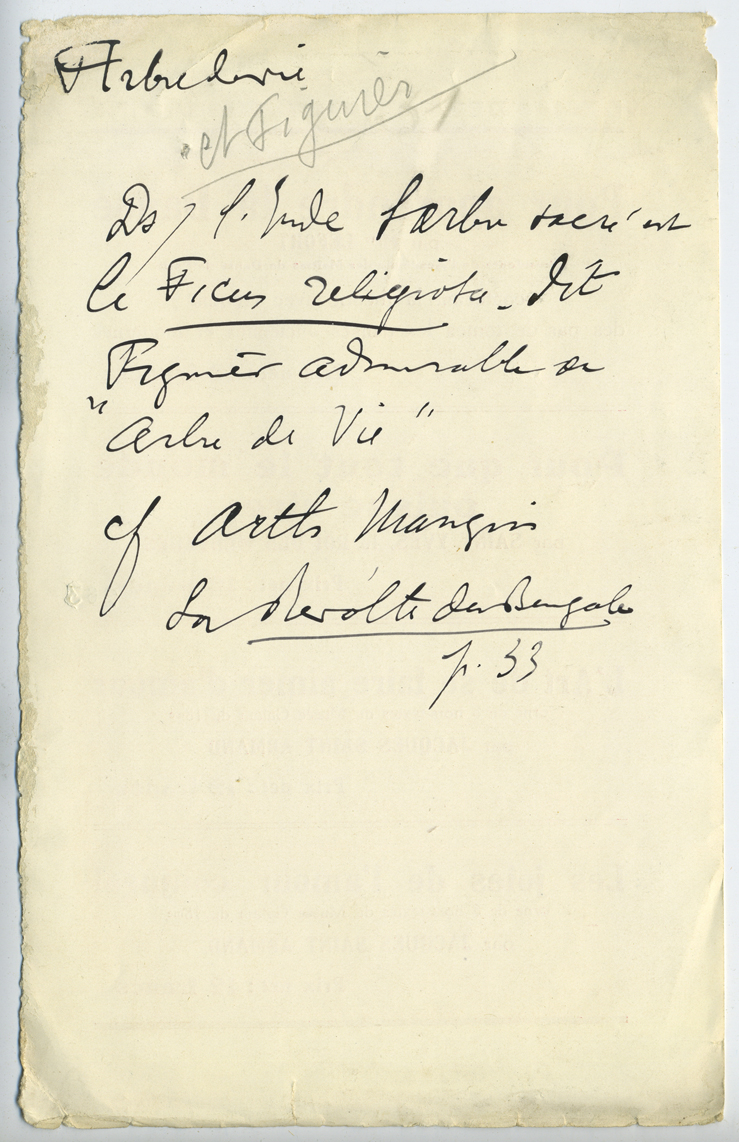 Arbre de vie
et Figuier
Ds l'Inde l'arbre sacré est
le Ficus religiosa - dit
Figuier admirable ou
"arbre de Vie"
cf Arth Mangin
La Révolte du Bengale
p. 33